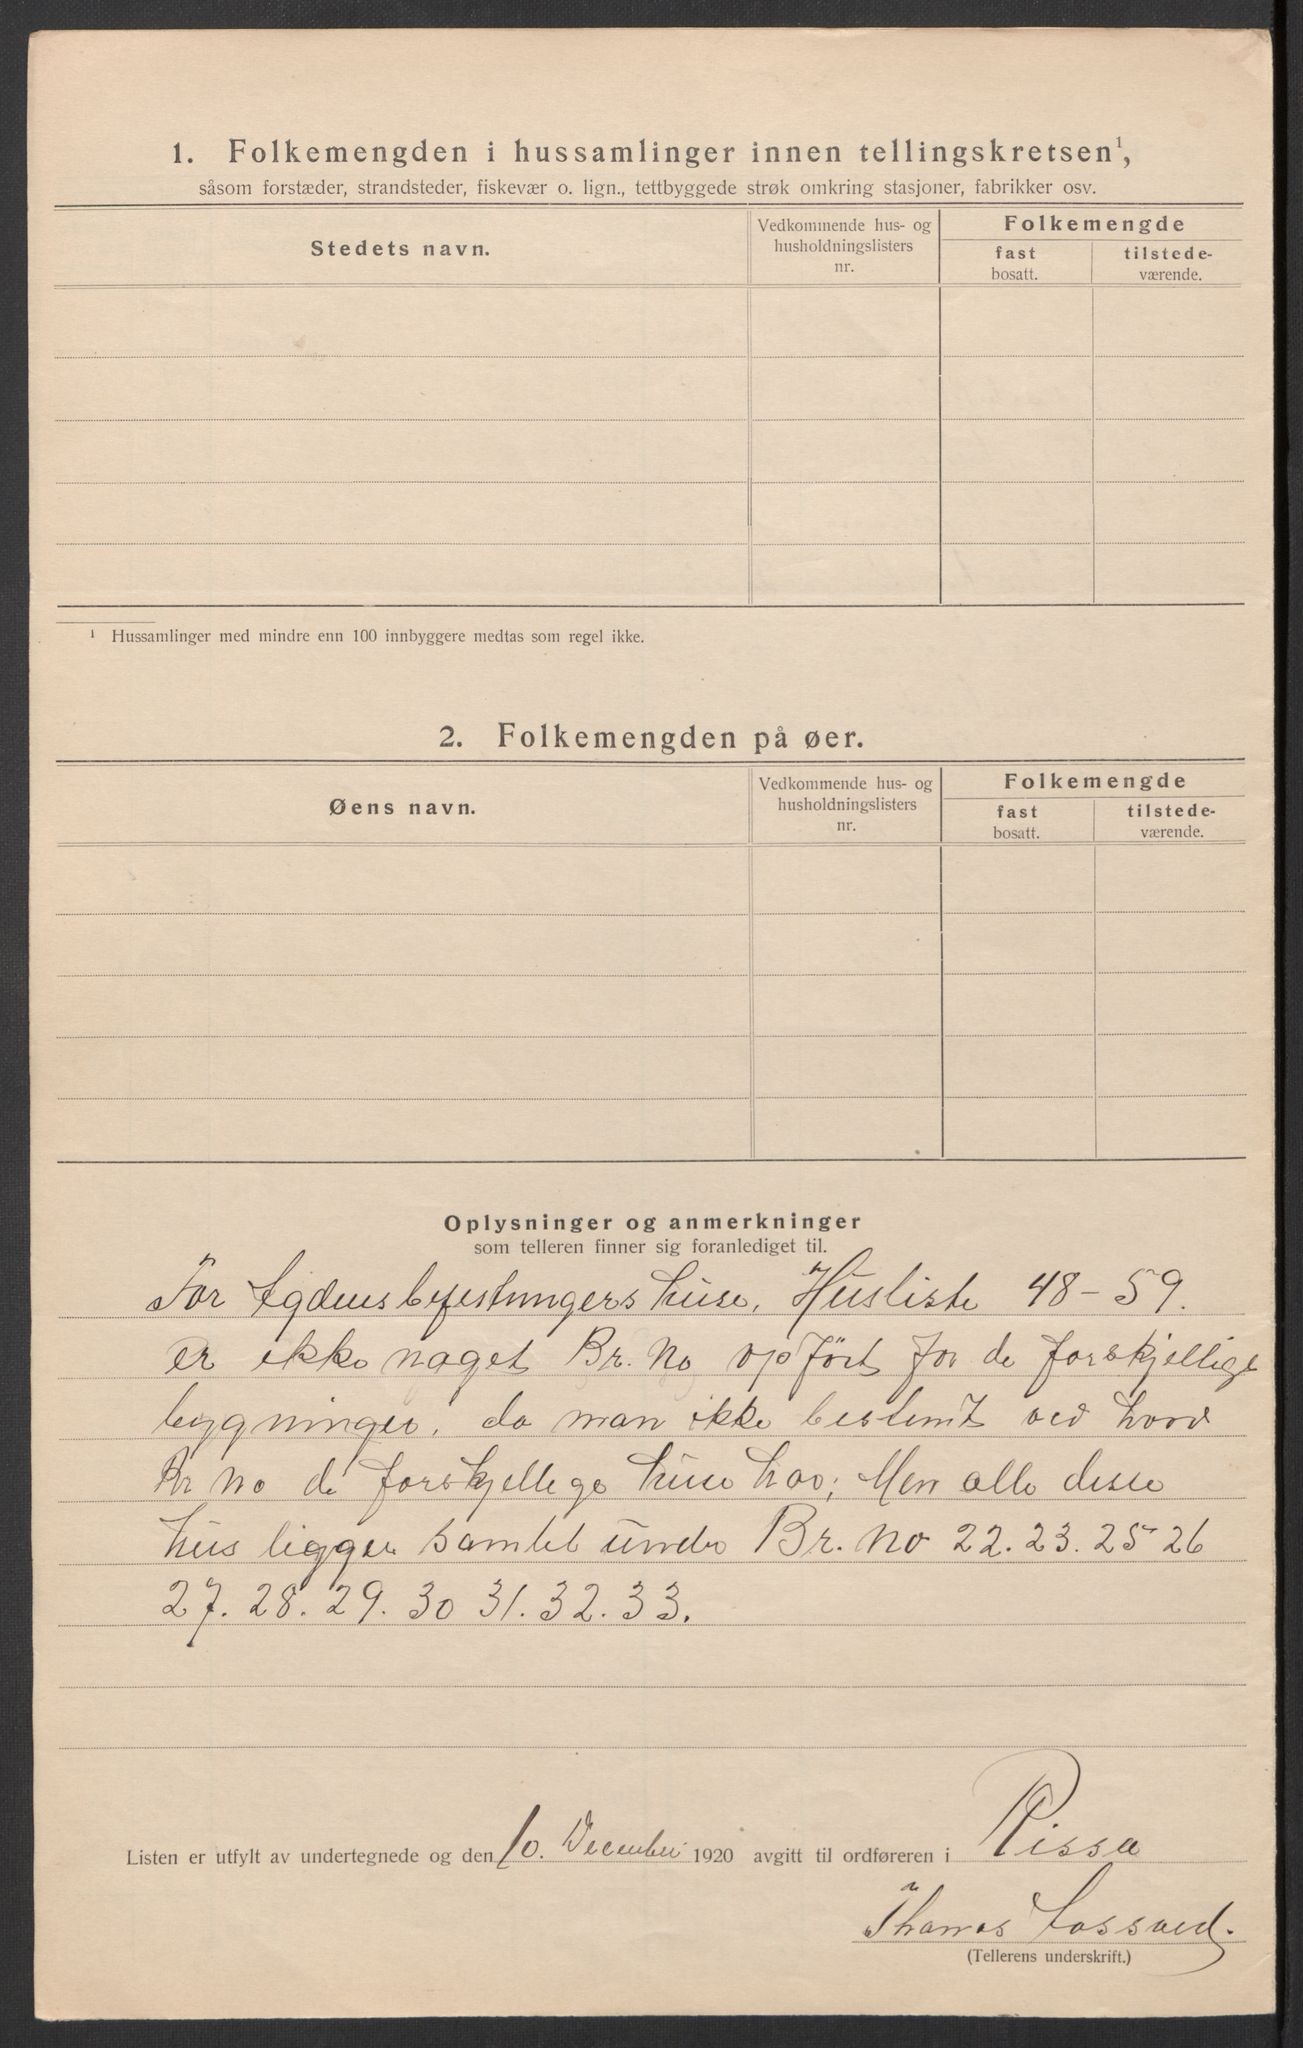 1. Folkemengden i hussamlinger innen tellingskretsen¹,
såsom forstæder, strandsteder, fiskevær o. lign., tettbyggede strøk omkring stasjoner, fabrikker osv.
Stedets navn.
Vedkommende hus- og
husholdningslisters
nr.
Folkemengde
fast
bosatt.
tilstede-
værende.
¹ Hussamlinger med mindre enn 100 innbyggere medtas som regel ikke.
2. Folkemengden på øer.
Øens navn.
Vedkommende hus- og
husholdningslisters
nr.
Folkemengde
fast
bosatt.
tilstede-
værende.
Oplysninger og anmerkninger
som telleren finner sig foranlediget til.
For Agdensbefestningers huse, Husliste 48-59.
er ikke noget Br. No opført for de forskjellige
bygninger, da man ikke bestemt ved hvad
Br No de forskjellege huse har; Men alle disse
hus ligger samlet under Br. No 22. 23. 25 26
27. 28. 29. 30 31. 32. 33.
Listen er utfylt av undertegnede og den 10. December 1920 avgitt til ordføreren i Rissa
Thomas
(Tellerens underskrift.)